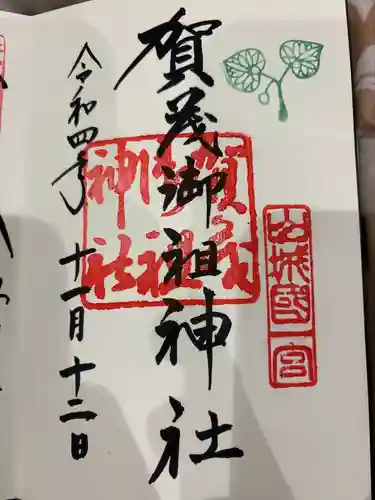 山城國一宮
賀茂御祖神社
賀茂御祖神社
令和四年
十一月十二日